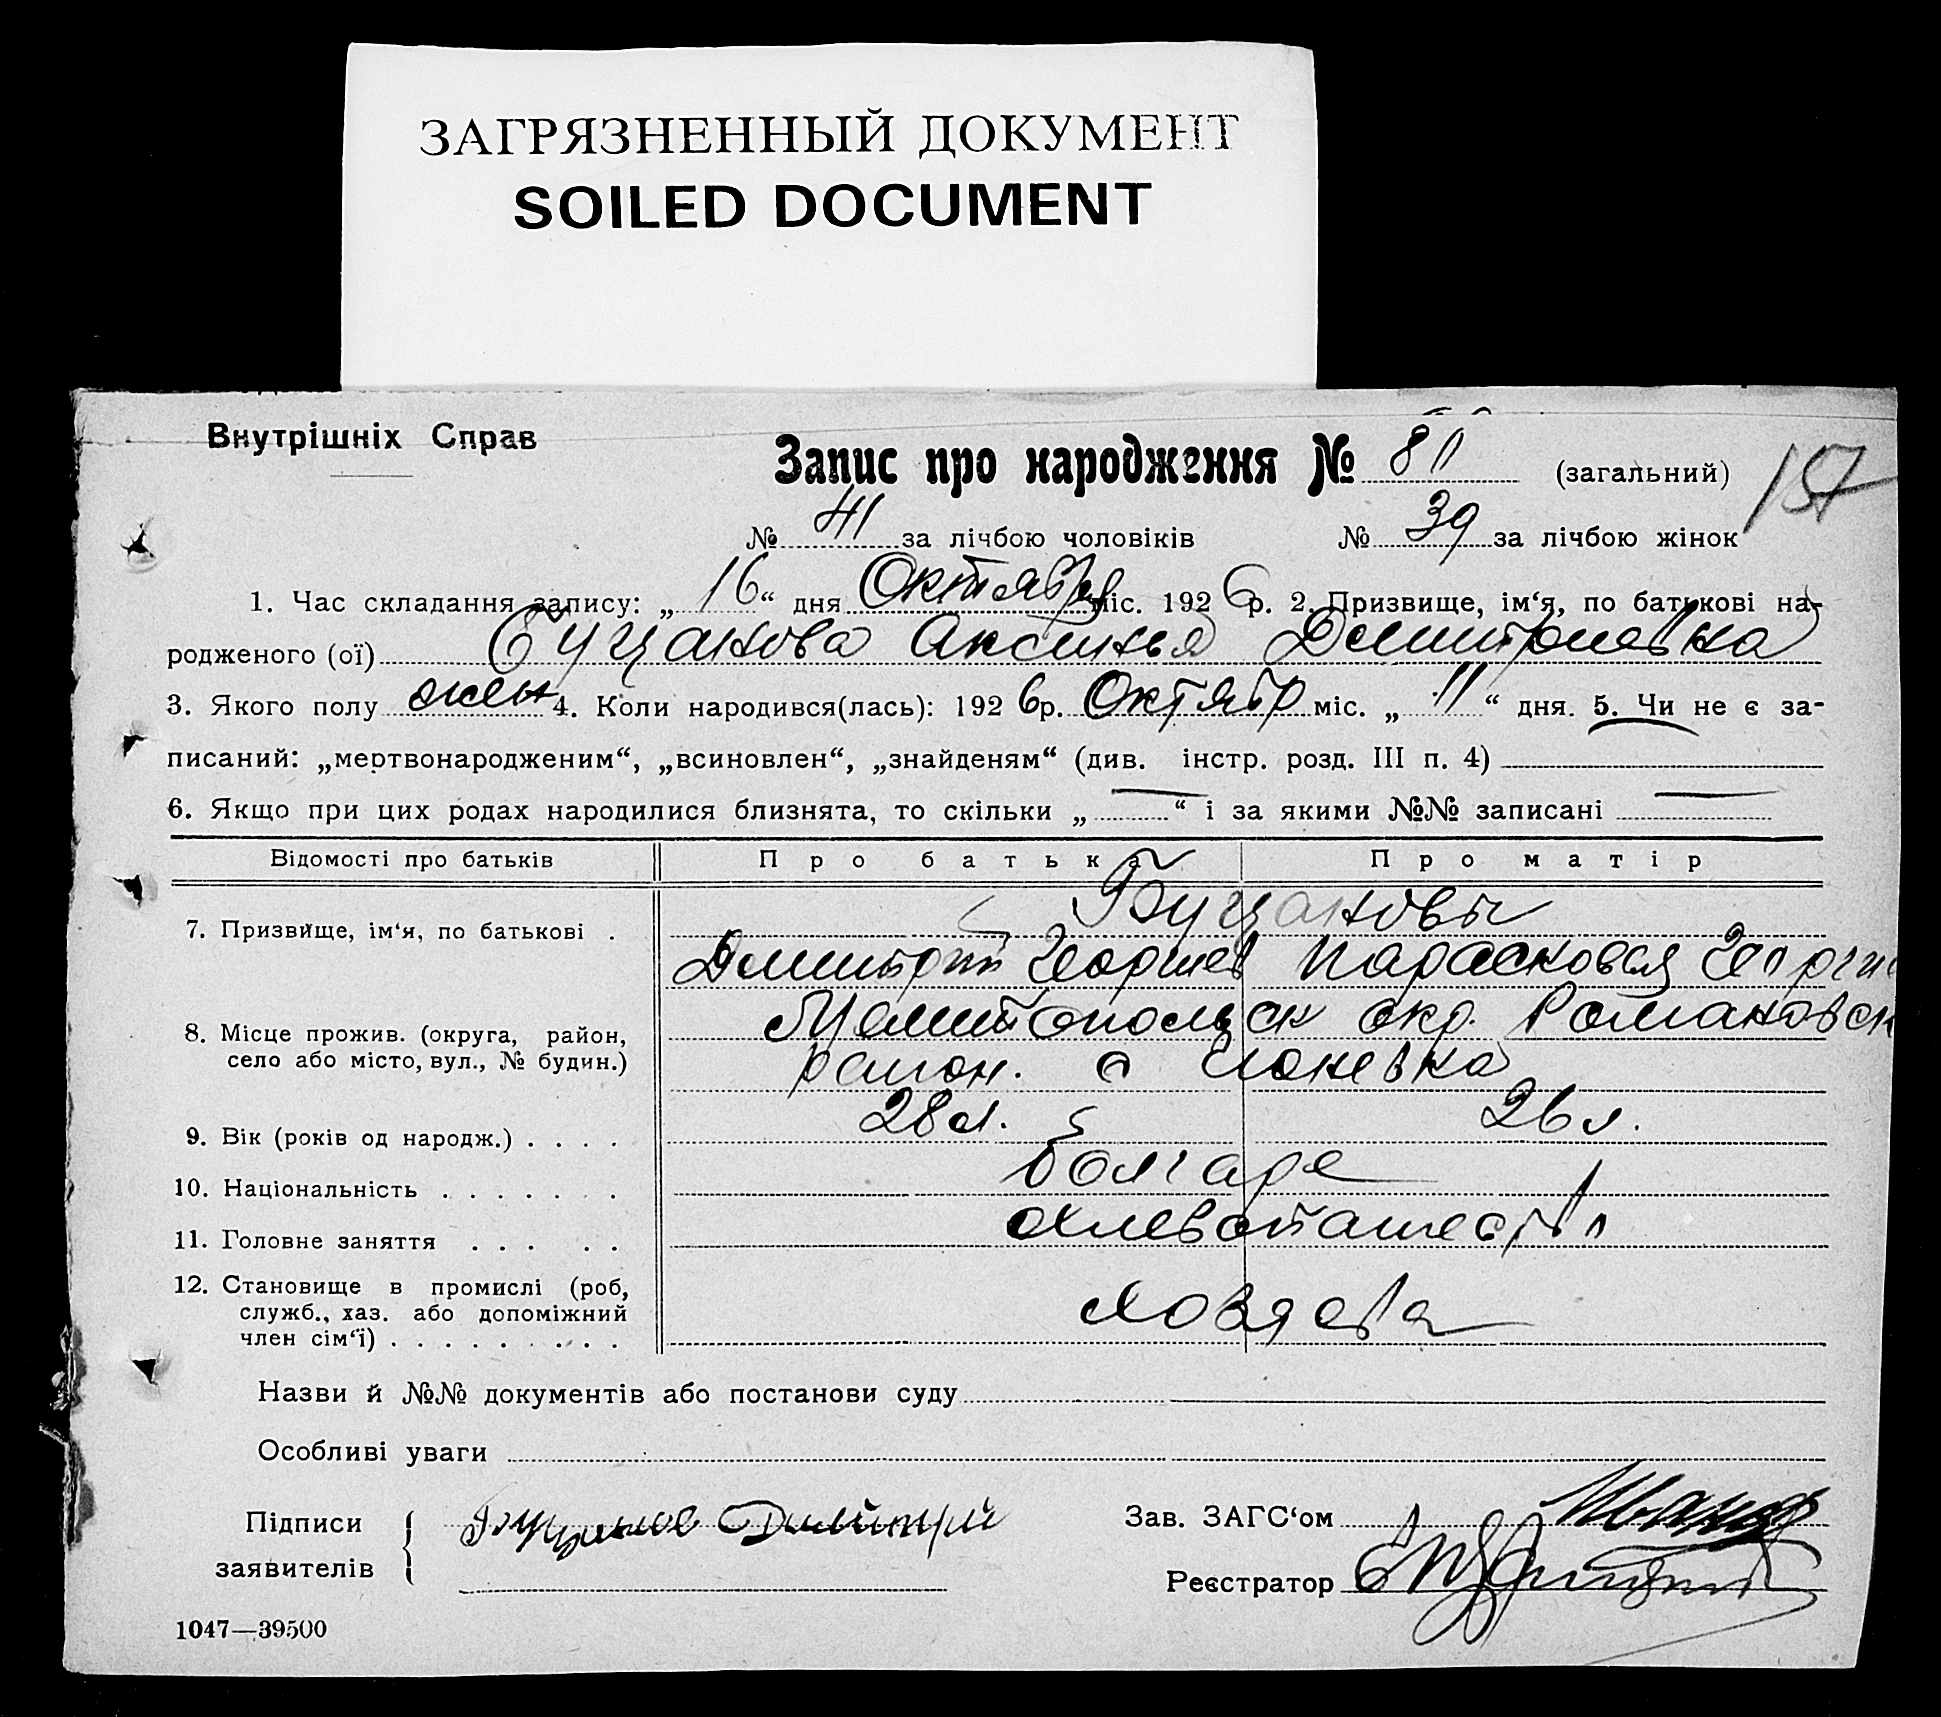 ЗАГРЯЗНЕННЫЙ ДОКУМЕНТ
SOILED DOCUMENT
Внутрішніх Справ
Запис про народження № 80 (загальний) 157
№ 41 за лічбою чоловіків № 39 за лічбою жінок
1. Час складання запису: „16“ дня Октября міс. 1926 р. 2. Призвище, ім‘я, по батькові на-
родженого (ої) Буцанова Аксинья Дмитриевна
3. Якого полу жен 4. Коли народився(лась): 1926 р. Октябр міс. „11“ дня. 5. Чи не є за-
писаний: „мертвонародженим“, „всиновлен“, „знайденям“ (див. інстр. розд. III п. 4)
6. Якщо при цих родах народилися близнята, то скільки „ “ і за якими №№ записані
Відомості про батьків Про батька Про матір
7. Призвище, ім‘я, по батькові . Буцановы
Димитрий Георгиев Парасковея Георги
8. Місце прожив. (округа, район, Мелитопольск окр. Романовск
село або місто, вул., № будин.) район. с
9. Вік (років од народж.) . . . . 28 л. 26 л.
10. Національність . . . . . . . болгаре
11. Головне заняття . . . . . хлебопашеств
12. Становище в промислі (роб,
служб., хаз. або допоміжний
член сім‘ї) . . . . . . . . . хозяева
Назви й №№ документів або постанови суду
Особливі уваги
Підписи заявителів { Буцанов Дмитрий
Зав. ЗАГС‘ом
Реєстратор
1047—39500